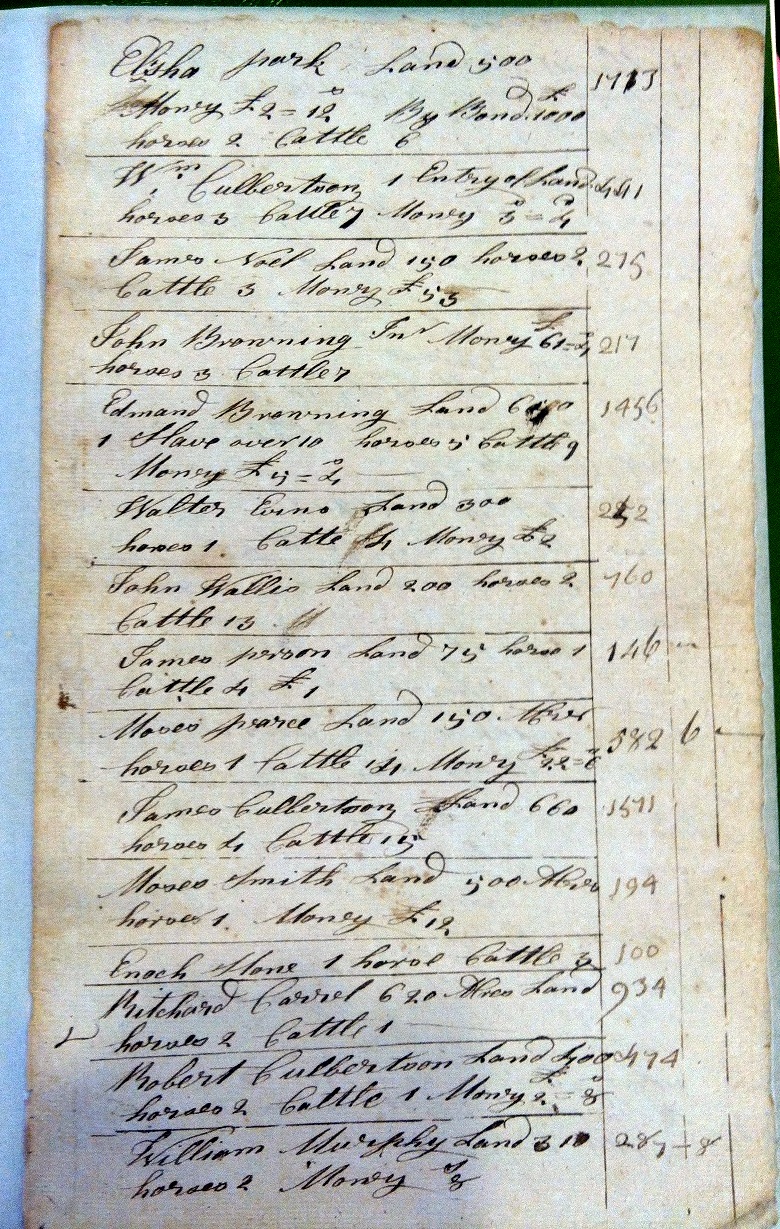 Elisha park Land 500
Money £2=12 By Bond £1000 1713
horses 2 Cattle 6
Wm Culbertson 1 Entry of Land 441
horses 3 Cattle 7 Money 3=4
James Noel Land 150 horses 2 275
Cattle 3 Money £53
John Browning Jnr Money £61=4 217
horses 3 Cattle 7
Edmand Browning Land 1456
1 Slave over 10 horses 5 Cattle 9
Money £5=4
Walter Land 300
horses 1 Cattle 4 Money £2
John Wallis Land 200 horses 2 760
Cattle 13
James person Land 75 horse 1 146
Cattle 4 £1
Moses pearce Land 150 Acres 582 6
horses 1 Cattle 14 Money £22=6
James Culbertson Land 660 1571
horses 4 Cattle 15
Moses Smith Land 500 Acres 194
horses 1 Money £12
Enoch 1 horse Cattle 3 100
Ritchard Carrel 620 Acres Land 934
horses 2 Cattle 1
Robert Culbertson Land 400 474
horses 2 Cattle 1 Money £2=8
William Murphy Land 310 287=8
horses 2 Money 8